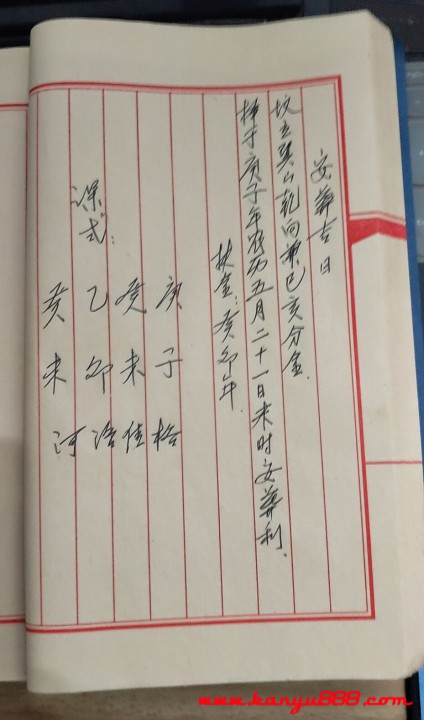 安葬吉日
坟立巽山乾向兼巳亥分金.
择于庚子年农历五月二十一日未时安葬利.
扶金:癸卯年.
课式:
庚子格
癸未佳
乙卯
癸未河
www.kanyu888.com